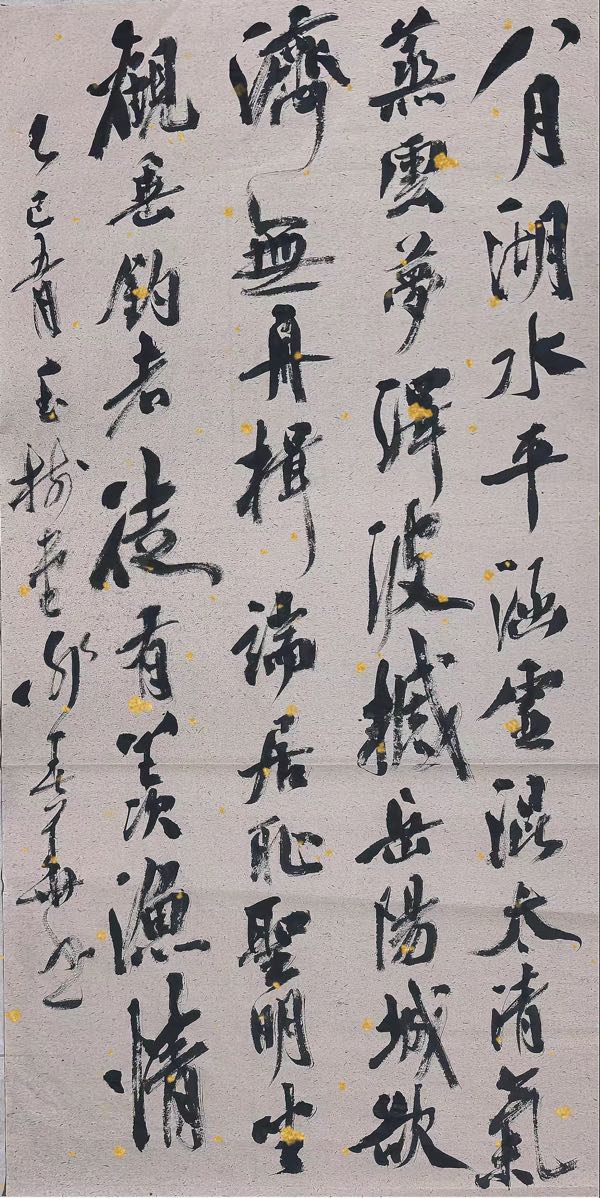 八月湖水平涵虛混太清氣
蒸雲夢澤波撼岳陽城欲
濟無舟楫端居耻聖明坐
觀垂釣者徒有羨漁情
乙巳五月玉樹堂春華